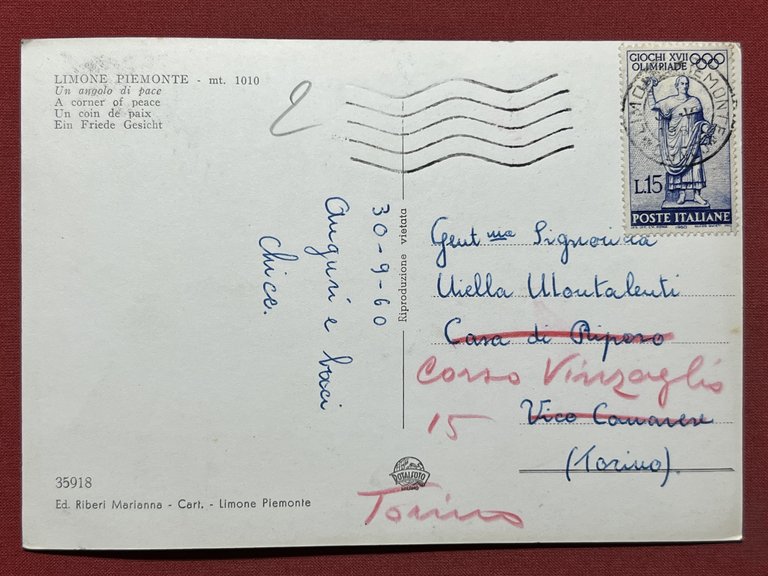 LIMONE PIEMONTE - mt. 1010
Un angolo di pace
A corner of peace
Un coin de paix
Ein Friede Gesicht
GIOCHI XVII
OLIMPIADE
L.15
POSTE ITALIANE
LIMONE PIEMONTE
30-9-60
Auguri e baci
Chice.
Riproduzione vietata
Gent ma Signorina
Uiella Montalenti
Casa di Riposo
Corso Vinzaglio
15
Vico Canavese
(Torino).
Torino
35918
Ed. Riberi Marianna - Cart. - Limone Piemonte